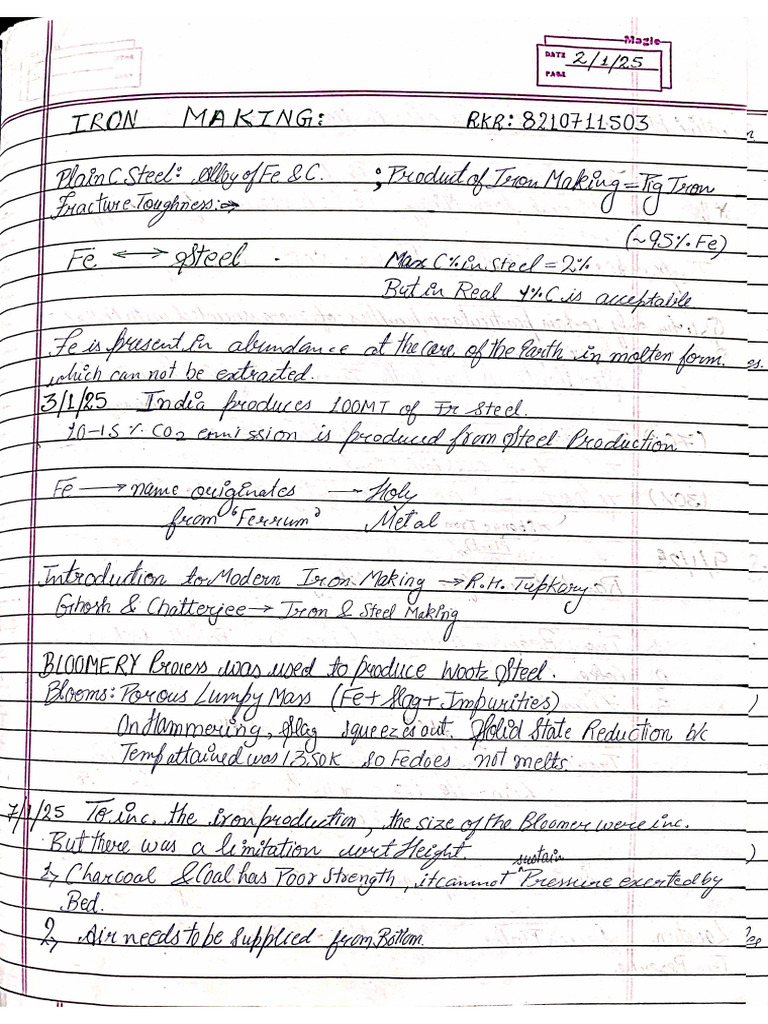 Magic
DATE 2/1/25
PAGE
IRON MAKING: RKR: 8210711503
Plain C Steel: Alloy of Fe & C. ; Product of Iron Making = Pig Iron
Fracture Toughness:→
(~95% Fe)
Fe ↔ Steel . Max C% in Steel = 2%
But in Real 1%C is acceptable
Fe is present in abundance at the core of the Earth in molten form.
which can not be extracted.
3/1/25 India produces 100MT of Steel.
10-15% CO2 emission is produced from Steel Production
Fe → name originates → Holy
from "Ferrum" Metal
Introduction to Modern Iron Making → R.H. Tupkary
Ghosh & Chatterjee → Iron & Steel Making
BLOOMERY Process was used to produce Wootz Steel.
Blooms: Porous Lumpy Mass (Fe + Slag + Impurities)
On Hammering, Slag squeezes out. Solid State Reduction b/c
Temp attained was 1350K so Fe does not melts
7/1/25 To inc. the iron production, the size of the Bloomer were inc.
But there was a limitation wort Height.
1, Charcoal & Coal has Poor Strength, it cannot sustain Pressure exerted by
Bed.
2, Air needs to be supplied from Bottom.